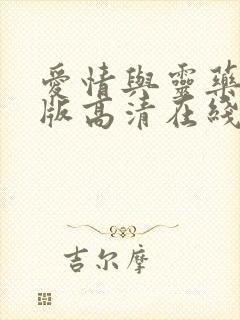 愛情與靈藥
版高清在綫
吉尔摩